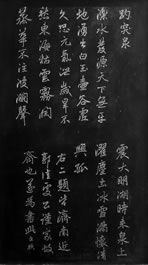 趵突泉
濼水發源天下無平
地湧出白玉壺谷虛
久恐元氣泄歲旱不
愁東海枯雲霧潤
蒸華不注波瀾聲
震大明湖時來泉上
濯塵土冰雪滿懷清
興孤
右二題皆濟南近